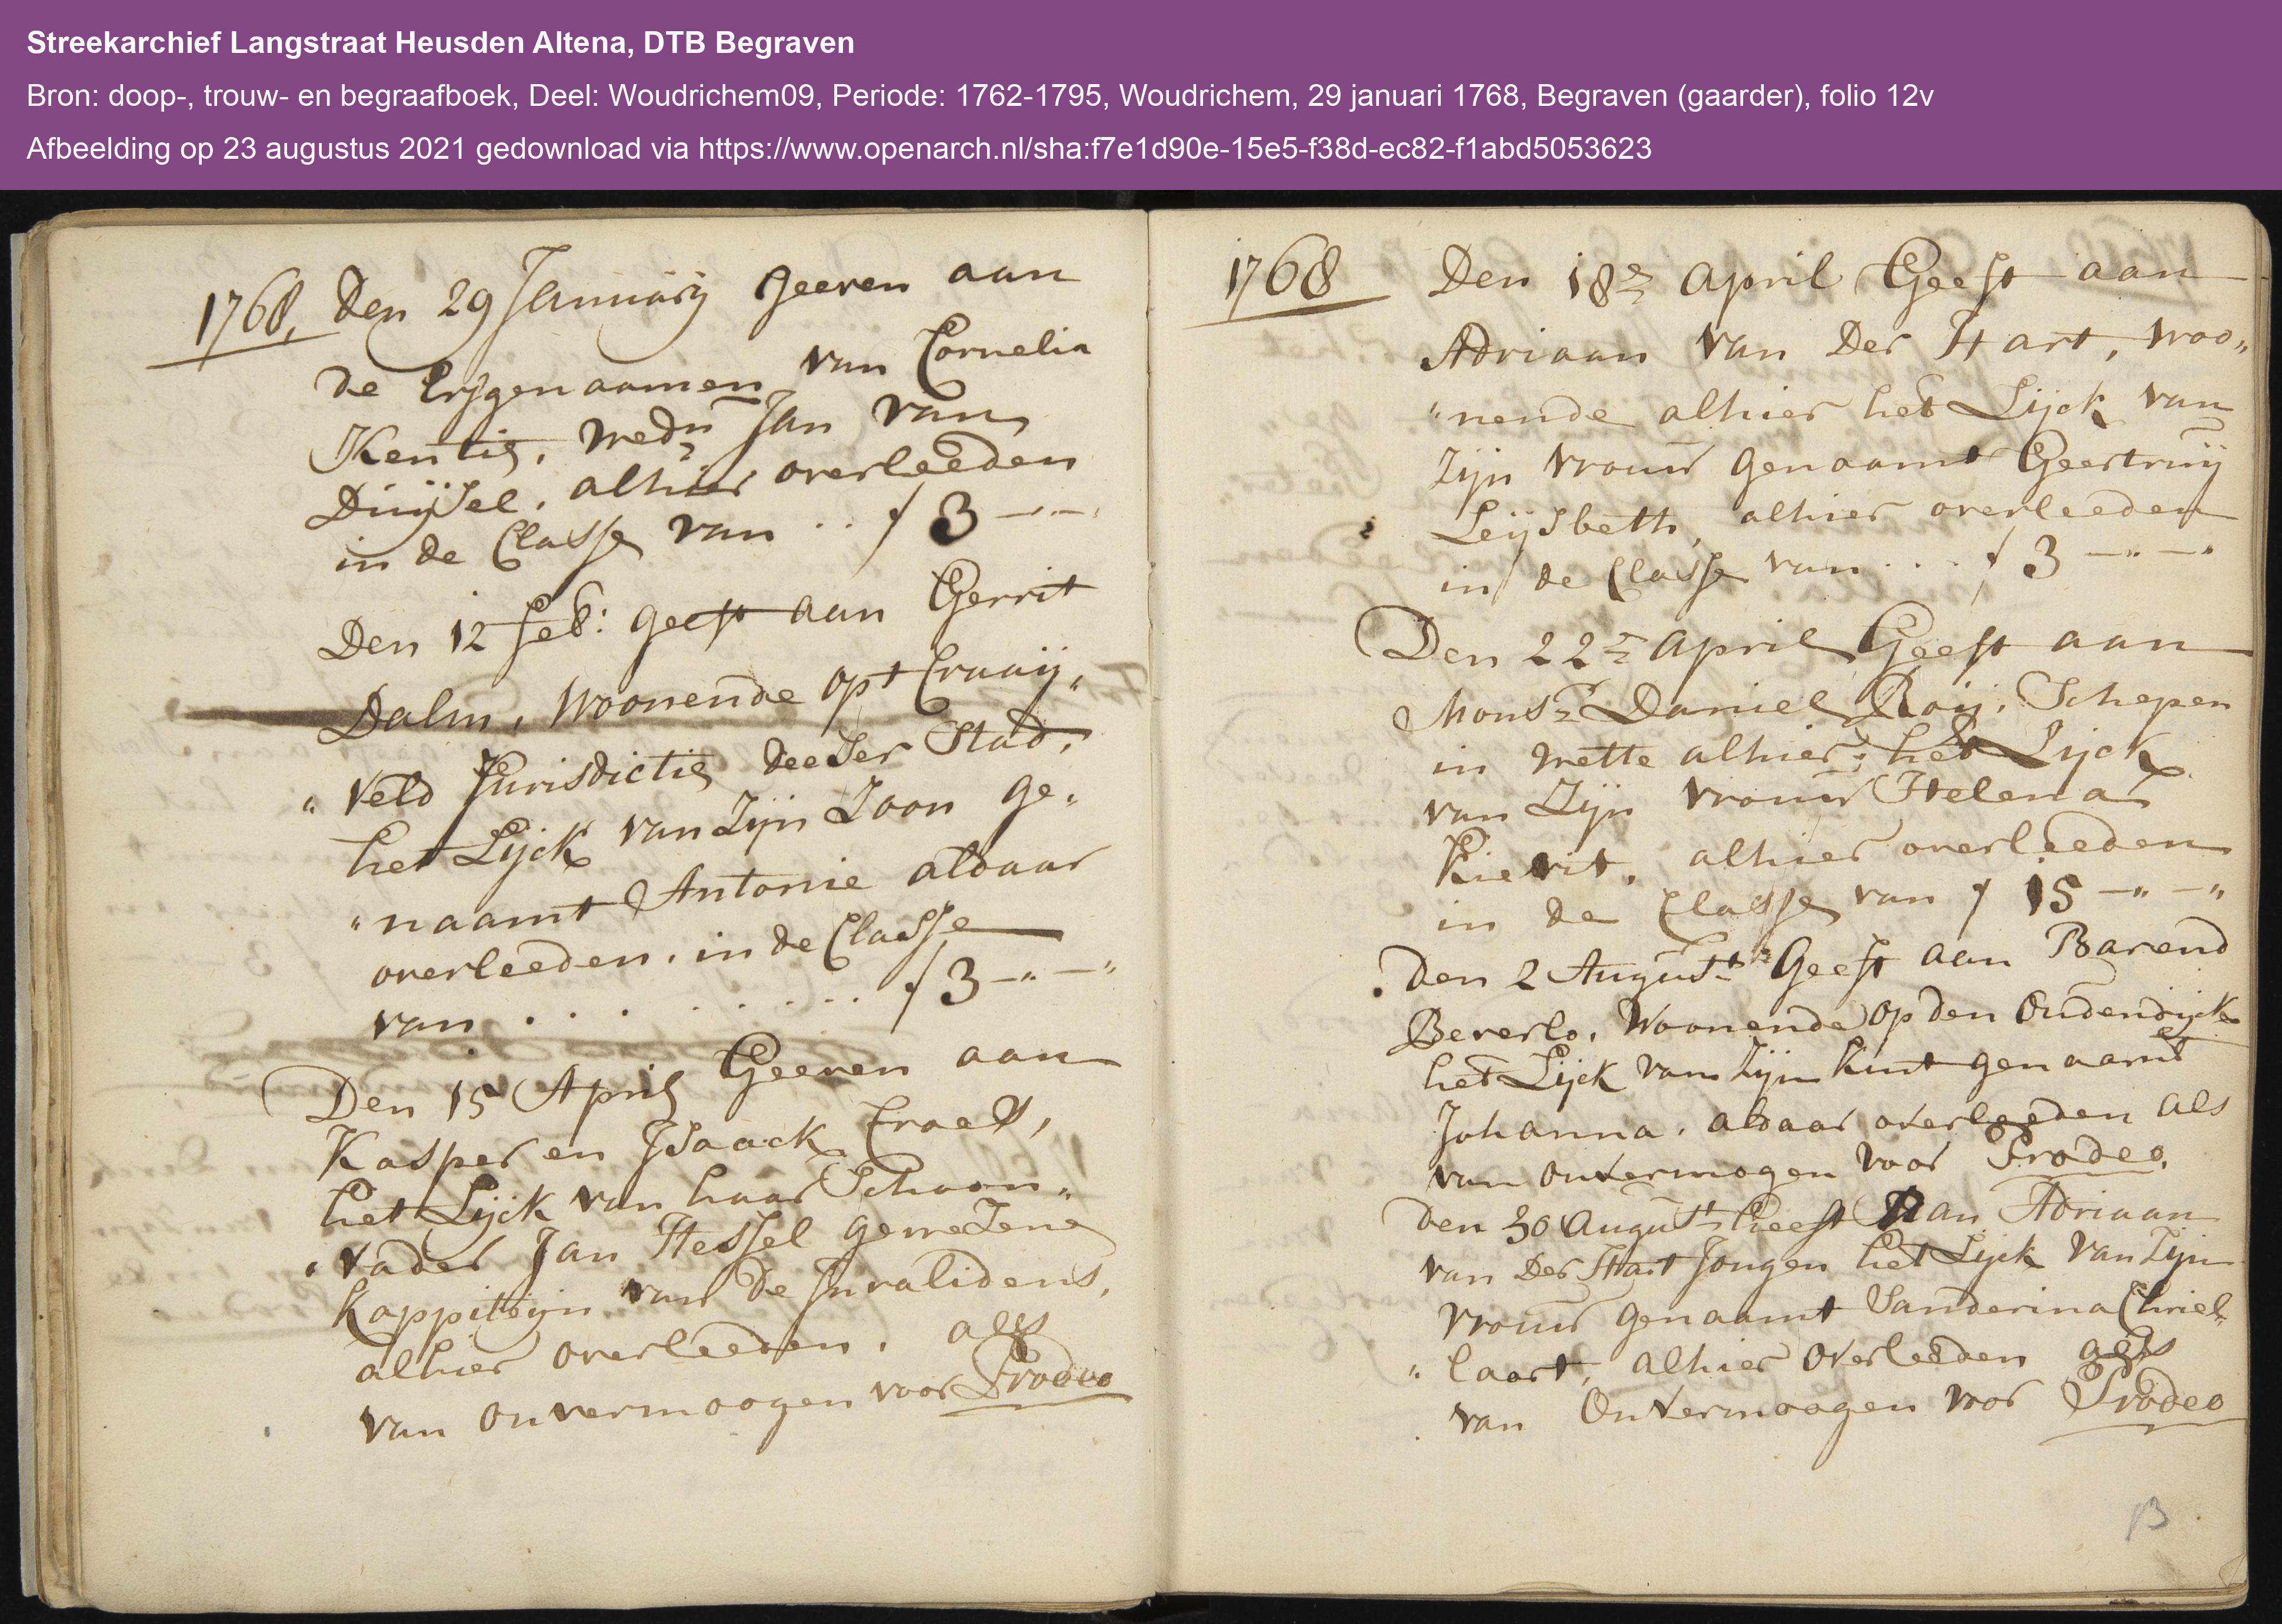 Streekarchief Langstraat Heusden Altena, DTB Begraven
Bron: doop-, trouw- en begraafboek, Deel: Woudrichem09, Periode: 1762-1795, Woudrichem, 29 januari 1768, Begraven (gaarder), folio 12v
Afbeelding op 23 augustus 2021 gedownload via https://www.openarch.nl/sha:f7e1d90e-15e5-f38d-ec82-f1abd5053623
1768, Den 29 January geeven aan
de Erfgenaamen van Cornelia
Kentie, wedn Jan van
Duÿsel, alhier overleeden
in de Classe van .. f 3 -"-"
Den 12 feb: geeft aan Gerrit
Dalm, Woonende op t Craaij„
„ veld Jurisdictie deeser Stad,
het Lijck van Zijn Zoon ge„
„naamt Antonie aldaar
overleeden, in de Classe
van . . . . . . . . f 3 -"-"
Den 15 April Geeven aan
Kasper en Jsaack
het Lijck van haar Schoon„
„vader Jan Hessel geweesene
Kappitteijn van de Jnvalidens,
alhier overleeden, als
van onvermoogen voor Prodeo
1768 Den 18e April Geeft aan
Adriaan van Der Hart, woo„
„nende alhier het Lijck van
Zijn vrouw genaamt Geertruij
Leijsbeth, alhier overleeden
in de Classe van . . . f 3 -"-"
Den 22e April Geeft aan
Monsr Daniel Roij, Schepen
in wette alhier, het Lijck
van Zijn vrouw Helena
Kievit, alhier overleeden
in de Classe van f 15 -"-"
Den 2 Augustt Geeft aan Barend
Beverlo, Woonende op den Oudendijck
het Lijck van Zijn Kint genaamt
Johanna, aldaar overleeden als
van onvermogen voor Prodeo,
Den 30 Augustt Geeft aan Adriaan
van Der Hart Jongen het Lijck van Zijn
vrouw genaamt Sanderina Chiel„
„laart, alhier overleeden als
van Onvermoogen voor Prodeo
13